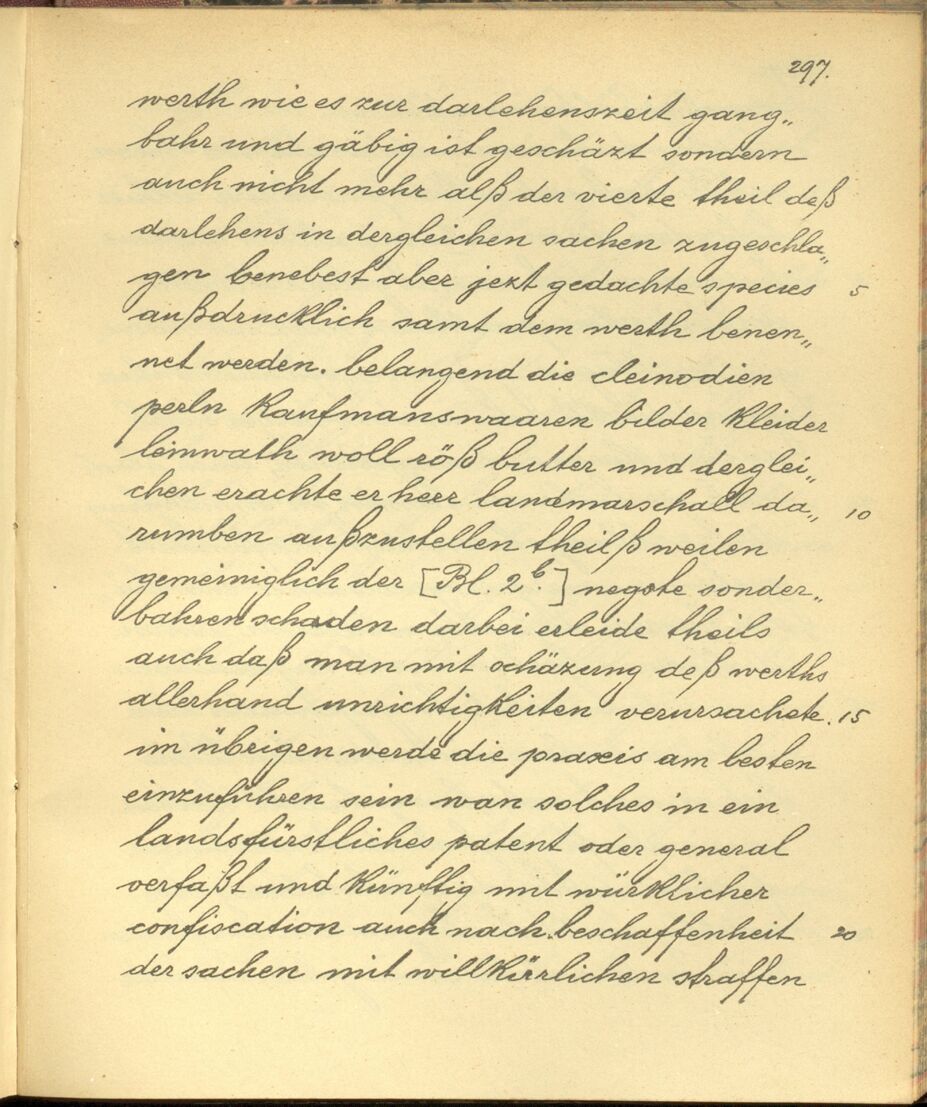 297.
werth wie es zur darlehenszeit gang„
bahr und gäbig ist geschäzt sondern
auch nicht mehr alß der vierte theil deß
darlehens in dergleichen sachen zugeschla„
gen benebest aber jezt gedachte species 5
außdrucklich samt dem werth benen„
net werden. belangend die cleinodien
perln Kaufmanswaaren bilder Kleider
leinwath woll röß butter und derglei„
chen erachte er herr landmarschall da„ 10
rumben außzustellen theilß weilen
gemeiniglich der [Bl. 2b.] negote sonder„
bahren schaden darbei erleide theils
auch daß man mit schäzung deß werths
allerhand unrichtigkeiten verursachete. 15
im übrigen werde die praxis am besten
einzuführen sein wan solches in ein
landsfürstliches patent oder general
verfaßt und künfftig mit würklicher
confiscation auch nach beschaffenheit 20
der sachen mit willkürlichen straffen